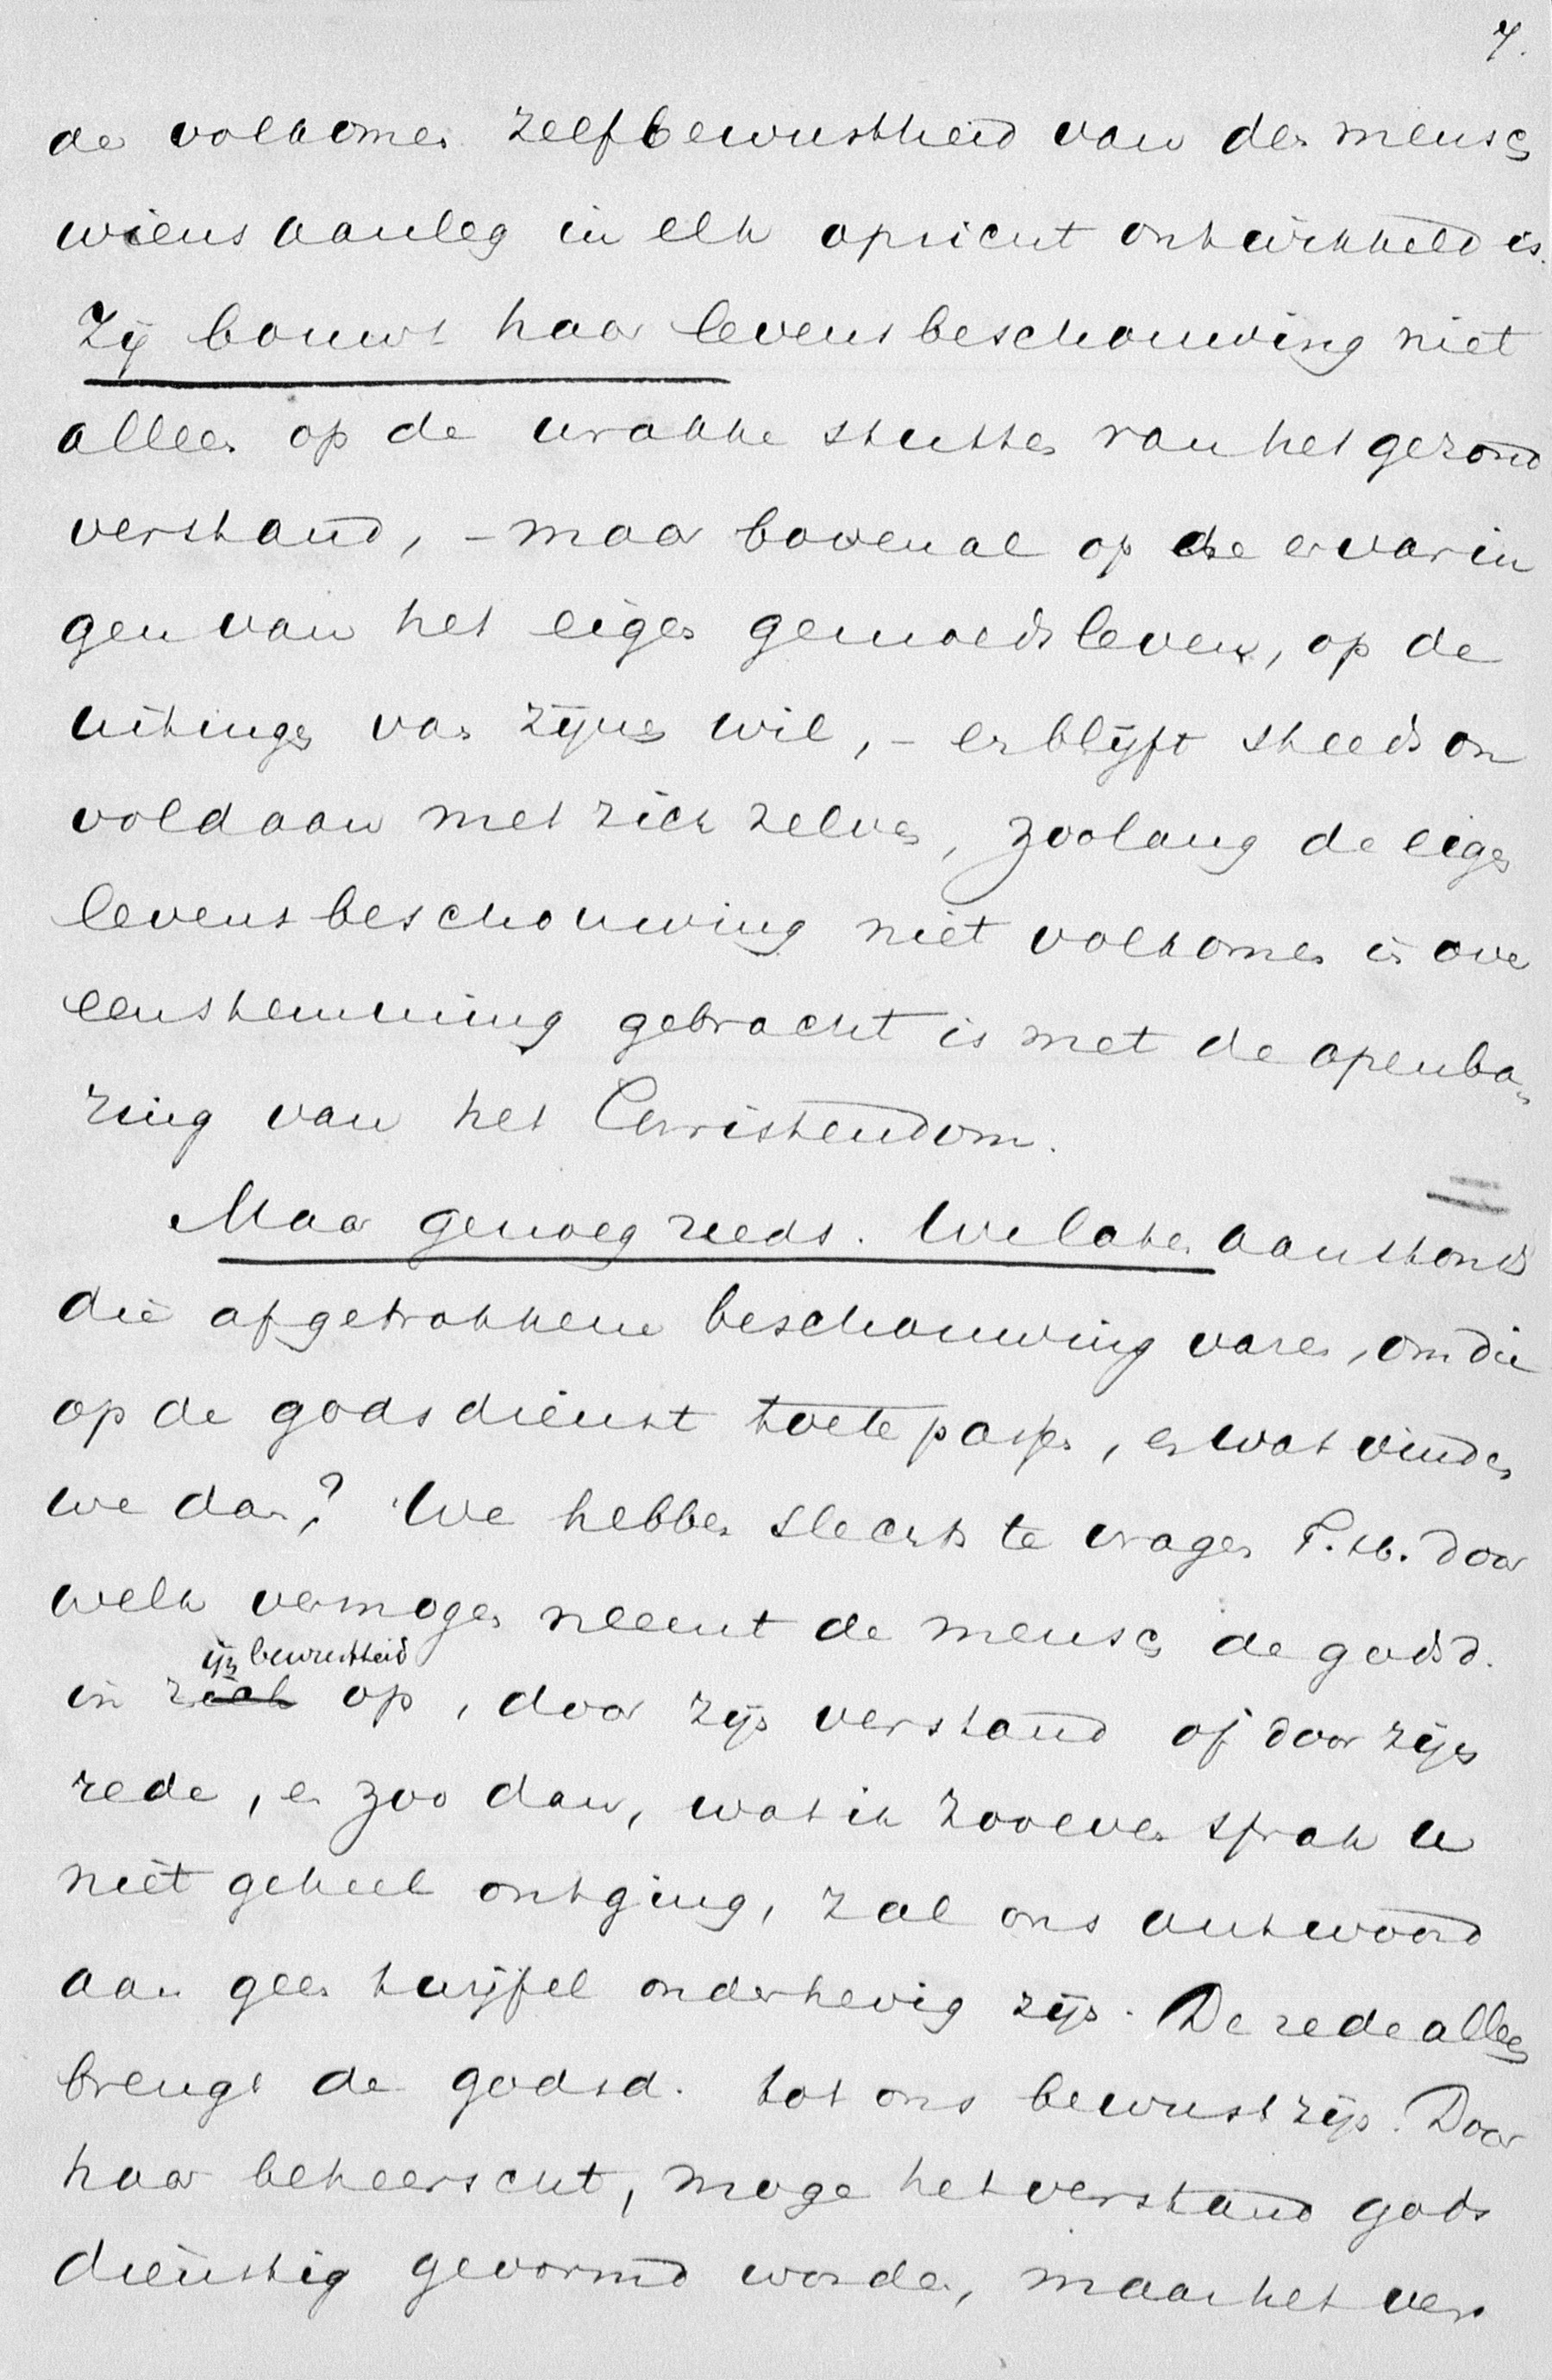 7.
de volkomen zelfbewustheid van den mensch
wiens aanleg in elk opzicht ontwikkeld is.
Zij bouwt haar levensbeschouwing niet
alleen op de wrakke stutten van het gezond
verstand, – maar bovenal op de ervarin
gen van het eigen gemoedsleven, op de
uitingen van zijnen wil, – en blijft steeds on
voldaan met zich zelven, zoolang de eigen
levensbeschouwing niet volkomen in over
eenstemming gebracht is met de openba-
ring van het Christendom.
Maar genoeg reeds. We laten aanstonds
die afgetrokkene beschouwing varen, om die
op de godsdienst toe te passen, en wat vinden
we dan? We hebben slechts te vragen door
welk vermogen neemt de mensch de godsd.
ijn bewustheid
in zich op, door zijn verstand of door zijn
rede, en zoo dan, wat ik zooeven sprak u
niet geheel ontging, zal ons antwoord
aan geen twijfel onderhevig zijn. De rede alleen
brengt de godsd. tot ons bewustzijn. Door
haar beheerscht, moge het verstand gods
dienstig gevormd worden, maar het ver